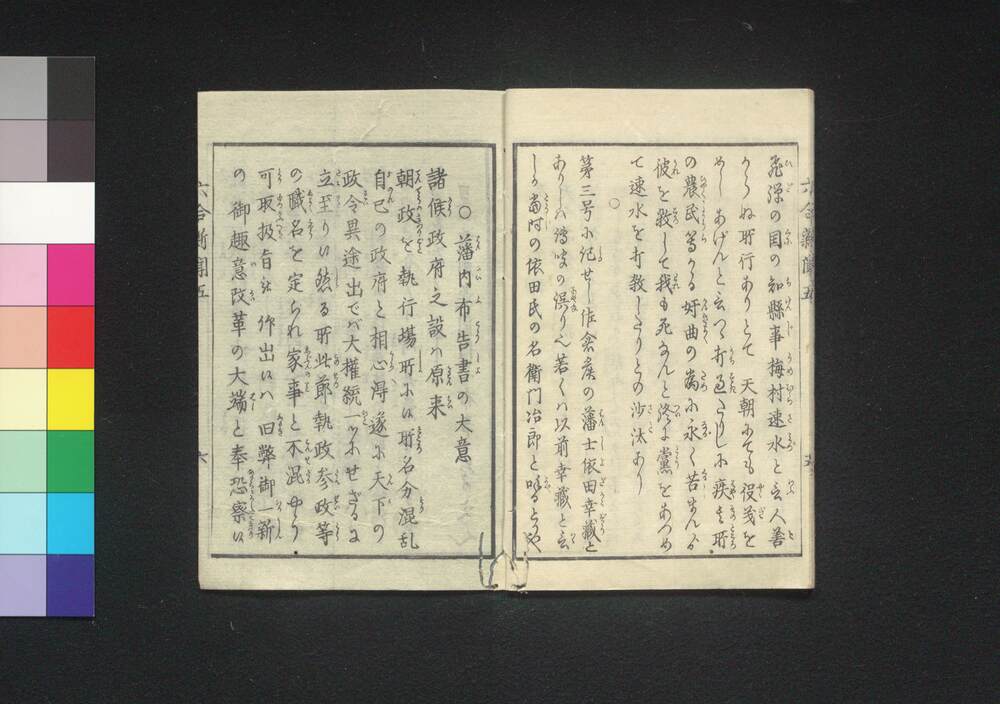 飛騨の国の知縣事梅村速水と云人善
からぬ所行ありとて 天朝にても役義を
めし あげんと云つゝ打過たりしに疾く其所
の農民等かゝる奸曲の為に永く苦まんより
彼を殺して我も死なんと終に黨をあつめ
て速水を打殺したりとの沙汰あり
○
第三号に記せし佐倉侯の藩士依田幸蔵と
ありしハ傳聞の誤り也若くハ以前幸蔵と云
しか當時の依田氏の名衛門治郎と唱るとかや
○ 藩内布告書の大意
諸候政府之設ハ原来
朝政を執行場所に候所名分混乱
自己の政府と相心得遂に天下の
政令異途出でバ大權統一ツにせざるに
立至り候然る所此節執政参政等
の職名を定られ家事と不混やう
可取扱旨被 仰出候ハ旧弊御一新
の 御趣意改革の大端と奉恐察候
六合新聞五
六